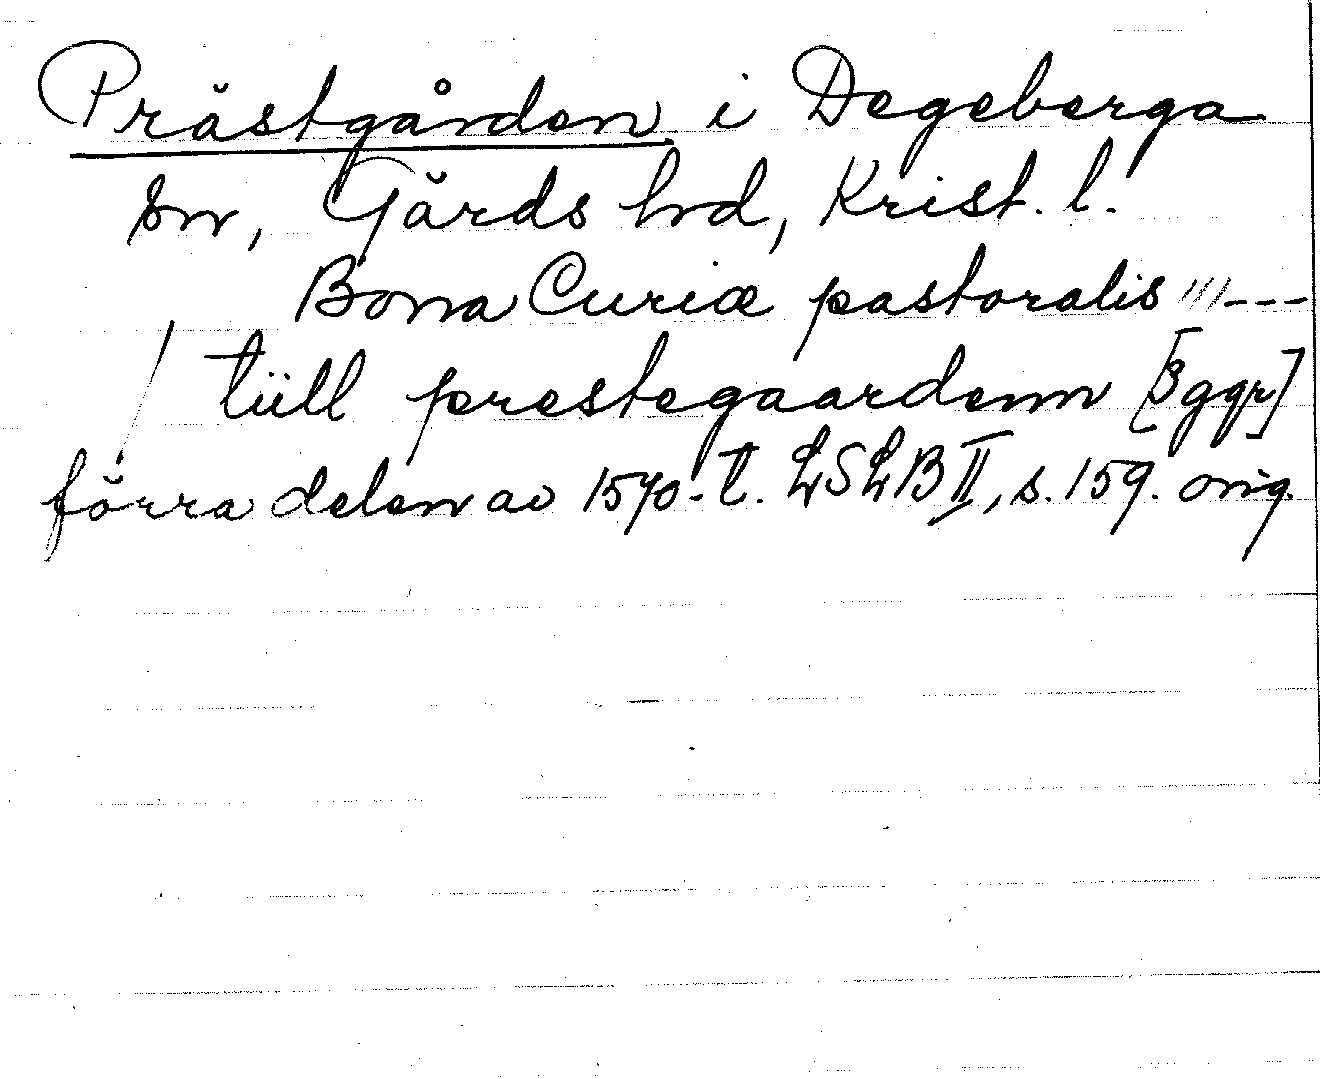 Prästgården i Degeberga
sn, Gärds hd, Krist. l.
Bona Curiæ pastoralis /// ---
/ tüll prestegaardenn [3 ggr]
förra delen av 1570-t. LSLB II, s. 159. orig.